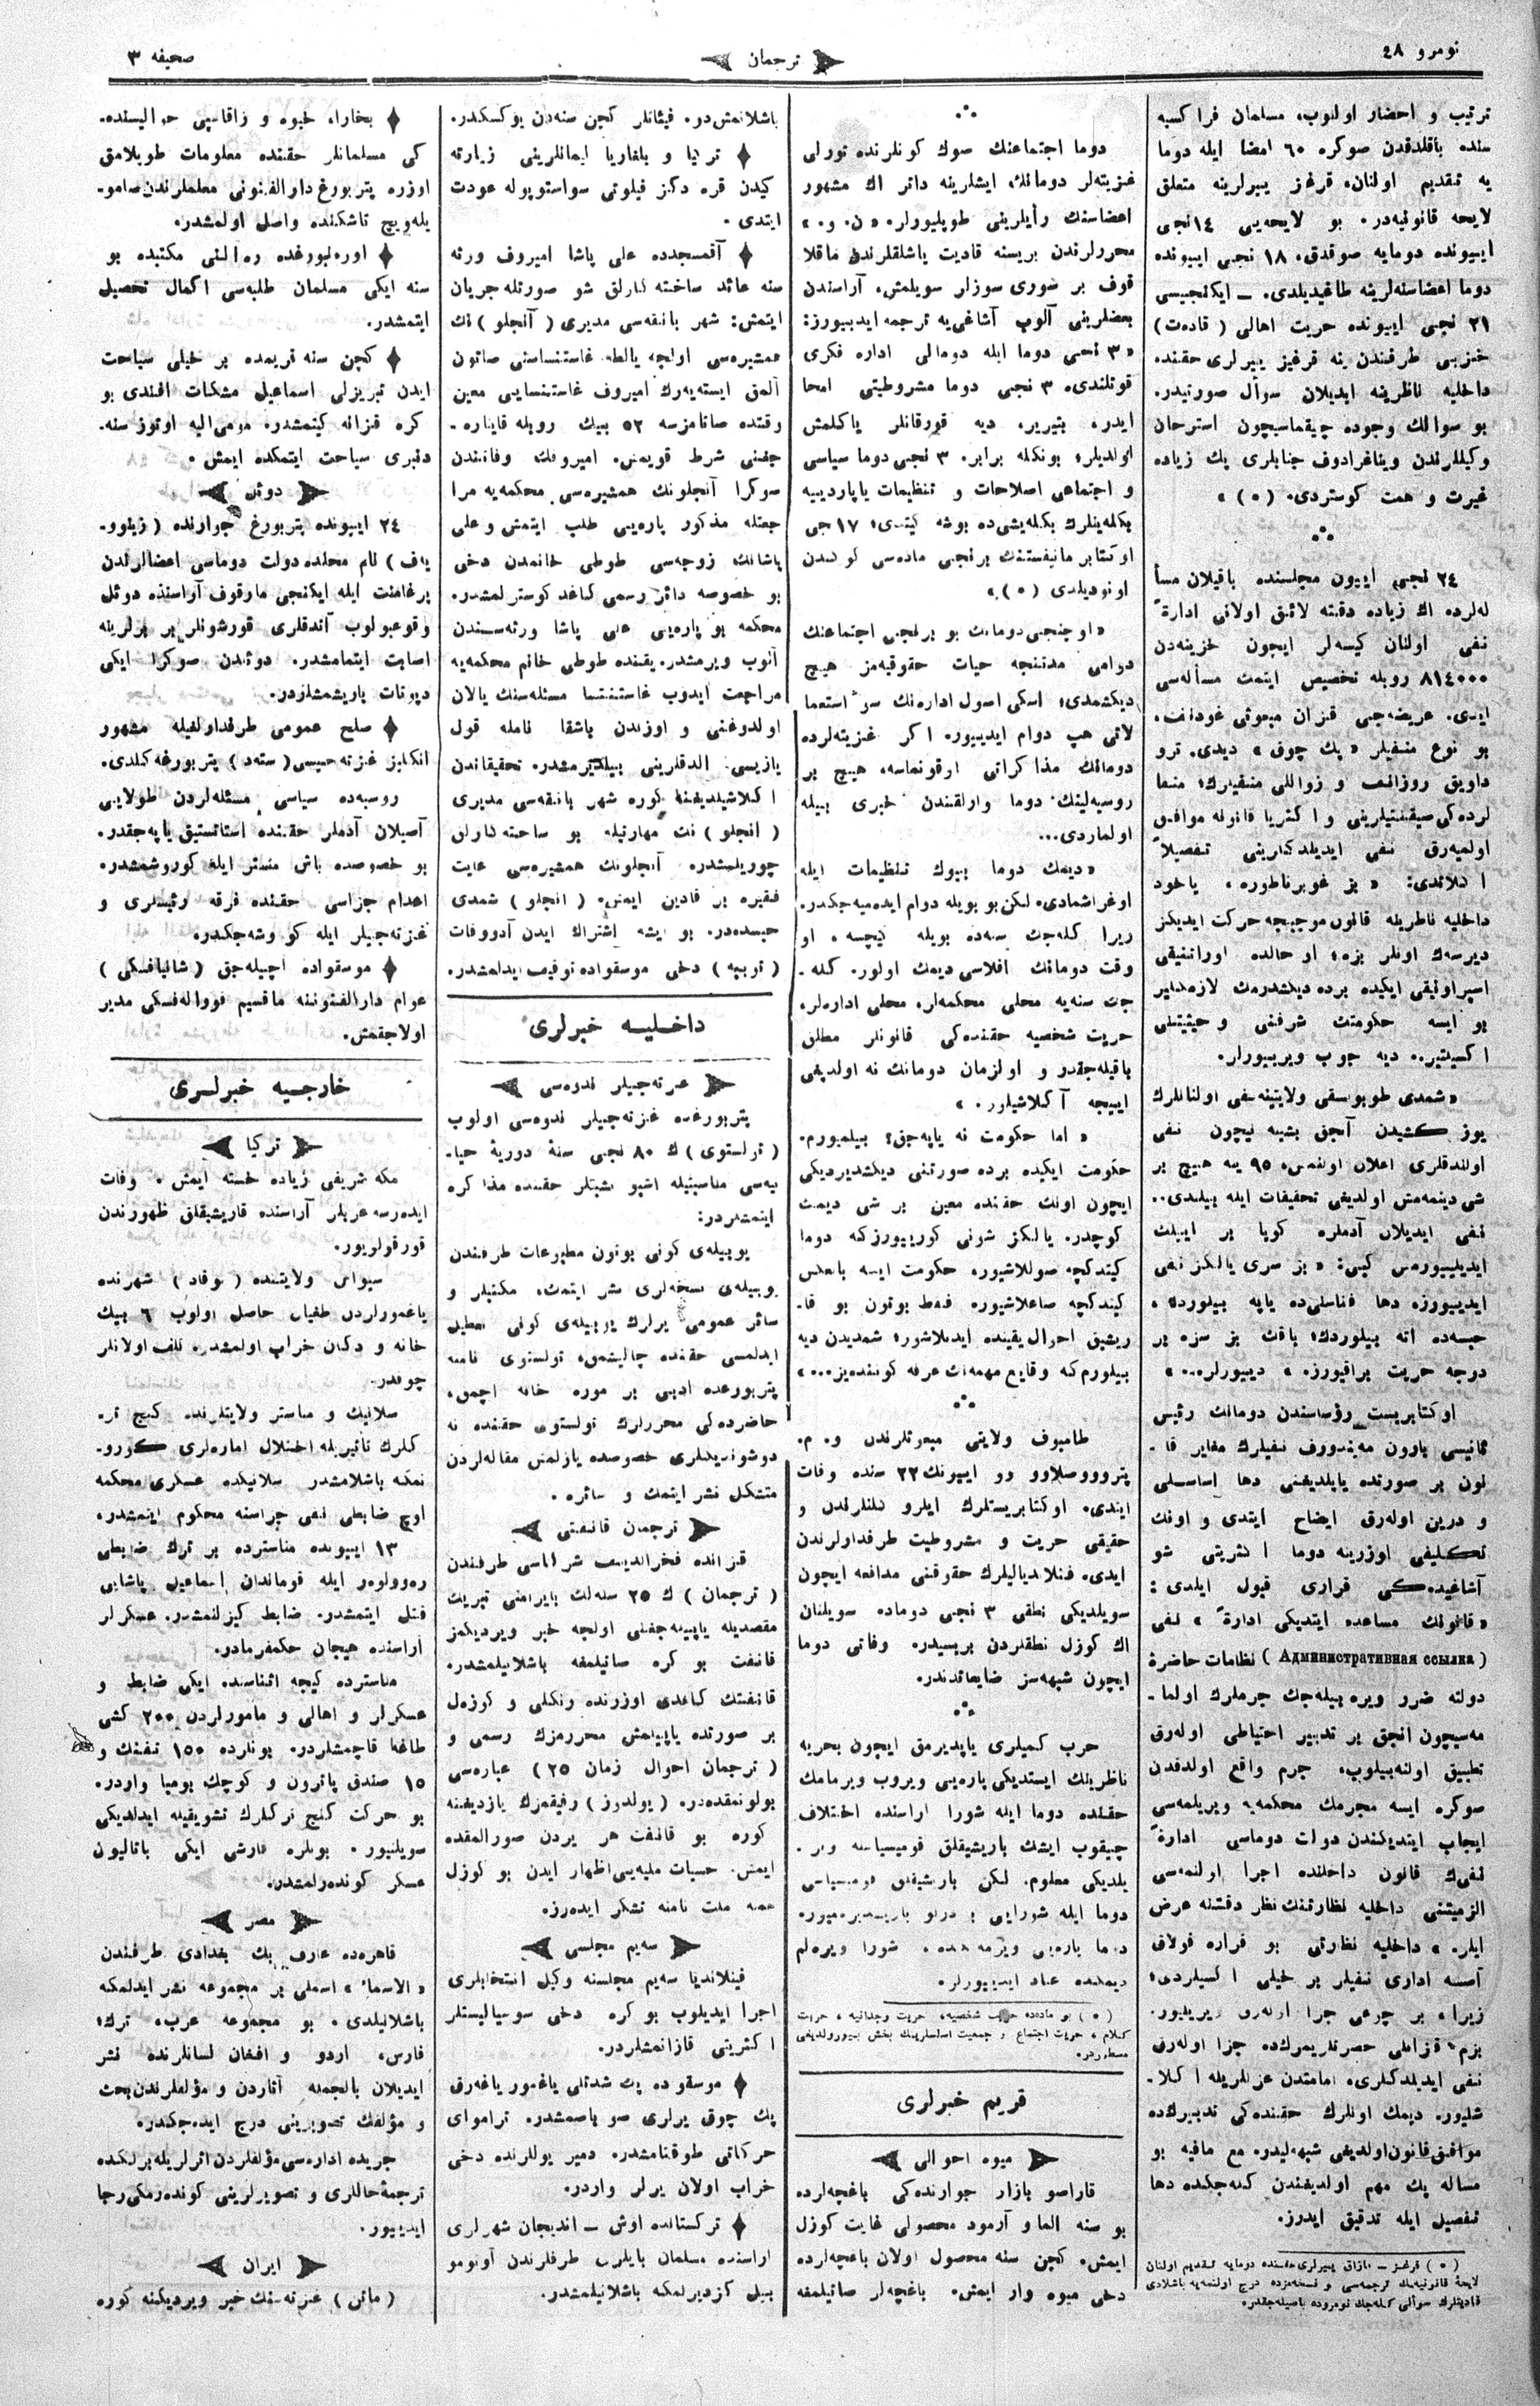 نومرو ٤٨
ترجمان
صحیفه ٣
ترتیب و احضار اولنوب، مسلمان فراكسیه
سنده باقلدقدن صوكره ٦٠ امضا ایله دوما
یه تقدیم اولنان، قرغز ییرلرینه متعلق
لایحه قانونیه‌در. بو لایحه‌یی ١٤ نجی
اییونده دومایه صوقدق، ١٨ نجی اییونده
دوما اعضاسنه‌لرینه طاغیدیلدی. ــ ایكنجیسی
٢١ نجی اییونده حریت اهالی (قادەت)
حزبی طرفندن ینه قرغیز ییرلری حقنده
داخلیه ناظرینه ایدیلان سوأل صورتیدر.
بو سوالك وجوده چیقماسیچون استرحان
وكیللرندن ویناغرادوف جنابلری پك زیاده
غیرت و همت كوستردی. (*) »
٢٤ نجی اییون مجلسنده باقیلان مسأ
له‌لرده اك زیاده دقته لائق اولانی ادارةً
نفی اولنان كیسه‌لر ایچون خزینه‌دن
٨١٤٠٠٠ روبله تخصیص ایتمك مسأله‌سی
ایدی. عریضه‌جی قزان مبعوثی غودنف،
بو نوع منفیلر « پك چوق » دیدی. ترو
داویق روزانف و زواللی منفیلرك؛ منفا
لرده‌كی صیقینتیلرینی و اكثریا قانونه موافق
اولمیه‌رق نفی ایدیلدكلرینی تفصیلاً
اكلاتدی: « بز غوبرناطوره، یاخود
داخلیه ناظرینه قانون موجبجه حركت ایدیكز
دیرسه‌ك اونلر بزه؛ او حالده اوراتنیقی
اسپراونیقی ایكیده برده دیكشدرمك لازمكلیر
بو ایسه حكومتك شرفنی و حیثیتنی
اكسیتیر.. دیه جوب ویرییورلر.
« شمدی طوبوسقی ولایتینه نفی اولنانلرك
یوز كشیدن آنجق بشینه نیچون نفی
اولندقلری اعلان اولنمش، ٩٥ ینه هیچ بر
شی دینمه‌مش اولدیغی تحقیقات ایله بیلندی..
نفی ایدیلان آدملره كویا بر ایبلك
ایدیلییورمش كبی: « بز سزی یالكز نفی
ایدییورز، دها فناسنی‌ده یاپه بیلوردك،
حبسه‌ده اته بیلوردك؛ باقك بز سزه بر
درجه حریت براقیورز. » دییورلر... »
اوكتابریست رؤساسندن دومانك رئیس
ثانیسی بارون مه‌یندورف نفیلرك مغایر قا ـ
نون بر صورتده یاپلدیغنی دها اساسلی
و درین اوله‌رق ایضاح ایتدی و اونك
تكلیفی اوزرینه دوما اكثریتی شو
آشاغیده‌كی قراری قبول ایلدی:
« قانونك مساعده ایتدیكی ادارةً » نفی
(Административная ссылка) نظامات حاضرهٔ
دولته ضرر ویره بیله‌جك جرملرك اولما ـ
مه‌سیچون انجق بر تدبیر احتیاطی اوله‌رق
تطبیق اولنه‌بیلوب، جرم واقع اولدقدن
صوكره ایسه مجرمك محكمه‌یه ویریلمه‌سی
ایجاب ایتدیكندن دولت دوماسی ادارةً
نفیك قانون داخلنده اجرا اولنه‌سی
الزمیتنی داخلیه نظارتنك نظر دقتنه عرض
ایلر. » داخلیه نظارتی بو قراره قولاق
آصسه اداری نفیلر بر خیلی اكسیلردی؛
زیرا، بر چوغی جزا اوله‌رق ویریلیور.
بزم قزانلی حضرتلریمزك‌ده جزا اوله‌رق
نفی ایدیلدكلری، امامتدن عزللریله اكلا ـ
شلیور. دیمك اونلرك حقنده‌كی تدبیرك‌ده
موافق قانون اولدیغی شبهه‌لیدر. مع مافیه بو
مساله پك مهم اولدیغندن كله‌جكده دها
تفصیل ایله تدقیق ایدرز.
(*) قرغز ــ قازاق ییرلری حقنده دومایه تقدیم اولنان
لایحهٔ قانونیه‌نك ترجمه‌سی و نسخه‌مزده درج اولنمه‌یه باشلادی
قادیتلرك سوألی كله‌جك نومروده باصیله‌جقدر.
دوما اجتماعنك صوك كونلرنده تورلی
غزیته‌لر دومانك، ایشلرینه دائر اك مشهور
اعضاسنك رأیلرینی طوپلیورلر. « ن. و. »
محررلرندن بریسنه قادیت باشلقلرندن ماقلا
قوف بر شوری سوزلر سویلمش، آراسندن
بعضلرینی آلوب آشاغی‌یه ترجمه ایدییورز:
« ٣ نجی دوما ایله دومالی اداره فكری
قوتلندی. ٣ نجی دوما مشروطیتی امحا
ایدر، بتیریر، دیه قورقانلر یاكلمش
اولدیلر؛ بونكله برابر. ٣ نجی دوما سیاسی
و اجتماعی اصلاحات و تنظیمات یاپاردییه
بكله‌ینلرك بكله‌یشی‌ده بوشه كیتدی؛ ١٧ جی
اوكتابر مانیفستنك برنجی ماده‌سی كولندن
اونودیلدی (*) »
« اوچنجی دومانك بو برنجی اجتماعنك
دوامی مدتنجه حیات حقوقیه‌مز هیچ
دیكشمدی؛ اسكی اصول اداره‌نك سؤ استعما
لاتی هپ دوام ایدییور. اكر غزیته‌لرده
دومانك مذاكراتی اوقونماسه، هیچ بر
روسیه‌لینك دوما وارلقندن خبری بیله
اولمازدی...
« دیمك دوما بیوك تنظیمات ایله
اوغراشمادی، لكن بو بویله دوام ایده‌میه‌جكدر.
زیرا كله‌جك سنه‌ده بویله كیچسه، او
وقت دومانك افلاسی دیمك اولور. كله ـ
جك سنه‌یه محلی محكمه‌لر، محلی اداره‌لر،
حریت شخصیه حقنده‌كی قانونلر مطلق
باقیله‌جقدر و اولزمان دومانك نه اولدیغی
اییجه آكلاشیلور. »
« اما حكومت نه یاپه‌جق؟ بیلمیورم.
حكومت ایكیده برده صورتنی دیكشدیردیكی
ایچون اونك حقنده معین بر شی دیمك
كوچدر. یالكز شونی كورییورزكه دوما
كیتدكچه صوللاشیور، حكومت ایسه بالعكس
كیتدكچه صاغلاشیور، فقط بوتون بو قا ـ
ریشیق احوال یقینده ایدنلاشور؛ شمدیدن دیه
بیلورم كه وقایع مهمه‌نك عرفه كوننده‌یز... »
طامبوف ولایتی مبعوثلرندن و. م.
پتروووصلاوو دو اییونك ٢٢ سنده وفات
ایتدی. اوكتابریستلرك ایلرو كلنلرندن و
حقیقی حریت و مشروطیت طرفدارلرندن
ایدی. فنلاندیالیلرك حقوقنی مدافعه ایچون
سویلدیكی نطقی ٣ نجی دوماده سویلنان
اك كوزل نطقلردن بریسیدر. وفاتی دوما
ایچون شبهه‌سز ضایعاتدندر.
حرب كمیلری یاپدیرمق ایچون بحریه
ناظرینك ایستدیكی پاره‌یی ویروب ویرمامك
حقنده دوما ایله شورا اراسنده اختلاف
چیقوب ایشك باریشیقلق قومیسیاسنه ویر ـ
یلدیكی معلوم. لكن باریشیقلق قومیسیاسی
دوما ایله شورایی بر درلو باریشدیره‌میور،
دوما پاره‌یی ویرمه‌مكده، شورا ویره‌لم
دیمكده عناد ایدییورلر.
(*) بو ماده‌ده حریت شخصیه، حریت وجدانیه، حریت
كلام، حریت اجتماع و جمعیت اساسلرینك بخش بیورولدیغی
مسطوردر.
قریم خبرلری
میوه احوالی
قاراصو بازار جوارنده‌كی باغچه‌لرده
بو سنه الما و آرمود محصولی غایت كوزل
ایمش. كچن سنه محصول اولان باغچه‌لرده
دخی میوه وار ایمش. باغچه‌لر صاتیلمغه
باشلانمش‌در. فیئاتلر كچن سنه‌دن یوكسكدر.
تركیا و بلغاریا لیمانلرینی زیارته
كیدن قره دكز فیلوتی سواستوپوله عودت
ایتدی.
آقمسجدده علی پاشا امیروف ورثه
سنه عائد ساخته‌كارلق شو صورتله جریان
ایتمش: شهر بانقه‌سی مدیری (آنجلو) نك
همشیره‌سی اولجه یالطه غاستننساسنی صاتون
آلمق ایسته‌یه‌رك امیروف غاستننسایی معین
وقتده صاتامزسه ٥٢ بیك روبله قایتاره ـ
جغنی شرط قویمش. امیروفك وفاتندن
سوكرا آنجلونك همشیره‌سی محكمه‌یه مرا
جعتله مذكور پاره‌یی طلب ایتمش و علی
پاشانك زوجه‌سی طوطی خانمدن دخی
بو خصوصه دائر رسمی كاغد كوسترلمشدر.
محكمه بو پاره‌یی علی پاشا ورثه‌سندن
آلوب ویرمشدر. یقنده طوطی خانم محكمه‌یه
مراجعت ایدوب غاستننسا مسئله‌سنك یالان
اولدوغنی و اوزندن باشقا نامله قول
یازیسی الدقلرینی بیلدیرمشدر. تحقیقاتدن
اكلاشیلدیغنه كوره شهر بانقه‌سی مدیری
(انجلو) نك مهارتیله بو ساخته‌كارلق
چوریلمشدر. آنجلونك همشیره‌سی غایت
فقیره بر قادین ایمش. (انجلو) شمدی
حبسده‌در. بو ایشه اشتراك ایدن آدووقات
(توبیه) دخی موسقواده توقیف ایدلمشدر.
داخلیه خبرلری
غزته‌جیلر ندوه‌سی
پتربورغده غزته‌جیلر ندوه‌سی اولوب
(تولستوی) ك ٨٠ نجی سنهٔ دوریهٔ حیا ـ
تیه‌سی مناسبتیله اشبو شیئلر حقنده مذاكره
ایتمشلردر:
یوبیله‌ی كونی بوتون مطبوعات طرفندن
یوبیله‌ی نسخه‌لری نشر ایتمك، مكتبلر و
سائر عمومی یرلرك یوبیله‌ی كونی تعطیل
ایدلمسی حقنده چالیشمق، تولستوی نامنه
پتربورغده ادبی بر موزه خانه اچمق،
حاضرده‌كی محررلرك تولستوی حقنده نه
دوشوندیكلری خصوصده یازلمش مقاله‌لردن
متشكل نشر ایتمك و سائره.
ترجمان قانفتی
قزانده فخرالدینف شركاسی طرفندن
(ترجمان) ك ٢٥ سنه‌لك بایرامنی تبریك
مقصدیله یاپیله‌جغنی اولجه خبر ویردیكمز
قانفت بو كره صاتیلمغه باشلانیلمشدر.
قانفتك كاغدی اوزرنده رنكلی و كوزه‌ل
بر صورتده یاپیلمش محررمزك رسمی و
(ترجمان احوال زمان ٢٥) عباره‌سی
بولونمقده‌در. (یولدز) رفیقمزك یازدیغنه
كوره بو قانفت هر یردن صورالمقده
ایمش. حسیات ملیه‌یی اظهار ایدن بو كوزل
همته ملت نامنه تشكر ایده‌رز.
سه‌یم مجلسی
فینلاندیا سه‌یم مجلسنه وكیل انتخابلری
اجرا ایدیلوب بو كره دخی سوسیالیستلر
اكثریتی قازانمشلردر.
موسقوده پك شدتلی یاغمور یاغه‌رق
پك چوق یرلری صو باصمشدر. تراموای
حركاتی طوقتامشدر. دمیر یوللرنده دخی
خراب اولان یرلر واردر.
تركستانده اوش ــ اندیجان شهرلری
اراسنده مسلمان بایلری طرفلرندن آوتومو
بیل كزدیرلمكه باشلانیلمشدر.
بخارا، خیوه و زاقاسپی حوالیسنده ـ
كی مسلمانلر حقنده معلومات طوپلامق
اوزره پتربورغ دارالفنونی معلملرندن صامو ـ
یله‌ویچ تاشكنده واصل اولمشدر.
اوره‌نبورغده ره‌النی مكتبده بو
سنه ایكی مسلمان طلبه‌سی اكمال تحصیل
ایتمشدر.
كچن سنه قریمده بر خیلی سیاحت
ایدن تبریزلی اسماعیل مشكات افندی بو
كره قزانه كیتمشدر. مومی‌الیه اوتوز سنه ـ
دنبری سیاحت ایتمكده ایمش.
دوئل
٢٤ اییونده پتربورغ جوارنده (زیلوو ـ
یه‌ف) نام محلده دولت دوماسی اعضالرندن
برغامنت ایله ایكنجی مارقوف آراسنده دوئل
وقوعبولوب آتدقلری قورشونلر بر برلرینه
اصابت ایتمامشدر. دوئلدن صوكرا ایكی
دپوتات باریشمشلردر.
صلح عمومی طرفدارلغیله مشهور
انكلیز غزته‌جیسی (سته‌د) پتربورغه كلدی.
روسیه‌ده سیاسی مسئله‌لردن طولایی
آصیلان آدملر حقنده استاتستیق یاپه‌جقدر.
بو خصوصده باش منستر ایله كوروشمشدر.
اعدام جزاسی حقنده فرقه رئیسلری و
غزته‌جیلر ایله كوروشه‌جكدر.
موسقواده اچیله‌جق (شانیافسكی)
عوام دارالفنوننه ماقسیم قووالەفسكی مدیر
اولاجقمش.
خارجیه خبرلری
تركیا
مكه شریفی زیاده خسته ایمش. وفات
ایده‌رسه عربلر آراسنده قاریشیقلق ظهورندن
قورقولویور.
سیواس ولایتنده (توقاد) شهرنده
یاغمورلردن طغیان حاصل اولوب ٦ بیك
خانه و دكان خراب اولمشدر. تلف اولانلر
چوقدر.
سلانیك و مناستر ولایتلرنده كنج تر ـ
كلرك تاثیریله اختلال اماره‌لری كورو ـ
نمكه باشلامشدر. سلانیكده عسكری محكمه
اوچ ضابطی نفی جزاسنه محكوم ایتمشدر.
١٣ اییونده مناسترده بر ترك ضابطی
ره‌وولوه‌ر ایله قوماندان اسماعیل پاشایی
قتل ایتمشدر. ضابط كیزلنمشدر. عسكرلر
آراسنده هیجان حكمفرمادر.
مناسترده كیجه اثناسنده ایكی ضابط و
عسكرلر و اهالی و مامورلردن ٢٠٠ كشی
طاغه قاچمشلردر. بونلرده ١٥٠ تفنك و
١٥ صندق پاترون و كوچك بومبا واردر.
بو حركت كنج تركلرك تشویقیله ایدلدیكی
سویلنیور. بونلره قارشی ایكی باتالیون
عسكر كونده‌رلمشدر.
مصر
قاهره‌ده عارف بك بغدادی طرفندن
« الاسماء » اسملی بر مجموعه نشر ایدلمكه
باشلانیلدی. بو مجموعه عرب، ترك،
فارس، اردو و افغان لسانلرنده نشر
ایدیلان بالجمله آثاردن و مؤلفلرندن بحث
و مؤلفك تصویرینی درج ایده‌جكدر.
جریده اداره‌سی مؤلفلردن اثرلریله برلكده
ترجمهٔ حاللری و تصویرلرینی كونده‌رمكی رجا
ایدییور.
ایران
(ماتن) غزته‌سنك خبر ویردیكنه كوره